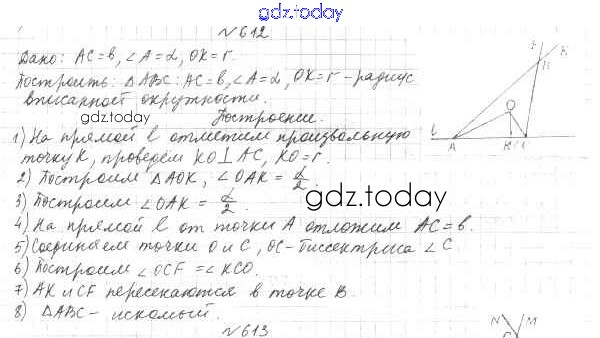 gdz.today
№612
Дано: AC=b, ∠A=α, OK=r.
Построить: △ABC: AC=b, ∠A=α, OK=r - радиус
вписанной окружности.
gdz.today
Построение.
1) На прямой l отметим произвольную
точку K, проведём KO⊥AC, KO=r.
2) Построим △AOK, ∠OAK = α/2
3) Построим ∠OAK = α/2.
gdz.today
4) На прямой l от точки A отложим AC=b.
5) Соединяем точки O и C, OC-биссектриса ∠C
6) Построим ∠OCF=∠KCO.
7) AK и CF пересекаются в точке B.
8) △ABC- искомый.
№613
l
A
K
C
O
B
F
N M